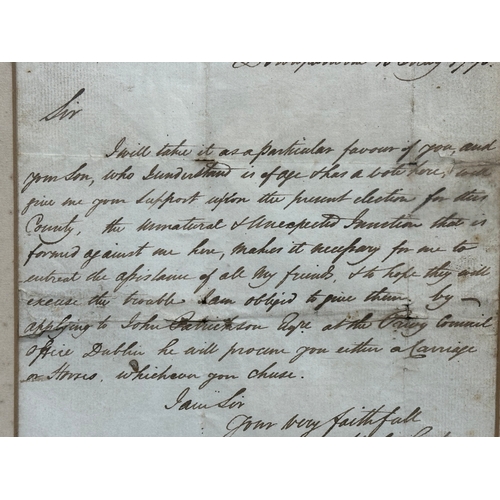 May 1790.
Sir
I will take it as a particular favour of you, and
your Son, who I understand is of age & has a vote here, will
give me your support upon the present election for this
County, the Unnatural & Unexpected Junction that is
formed against me here, makes it necessary for me to
entreat the assistance of all my friends, & to hope they will
excuse the trouble I am obliged to give them, by
applying to John Patrickson Esqre at the Privy Council
Office Dublin he will procure you either a Carriage
or Horses, whichever you chuse.
I am Sir
Your very faithfull